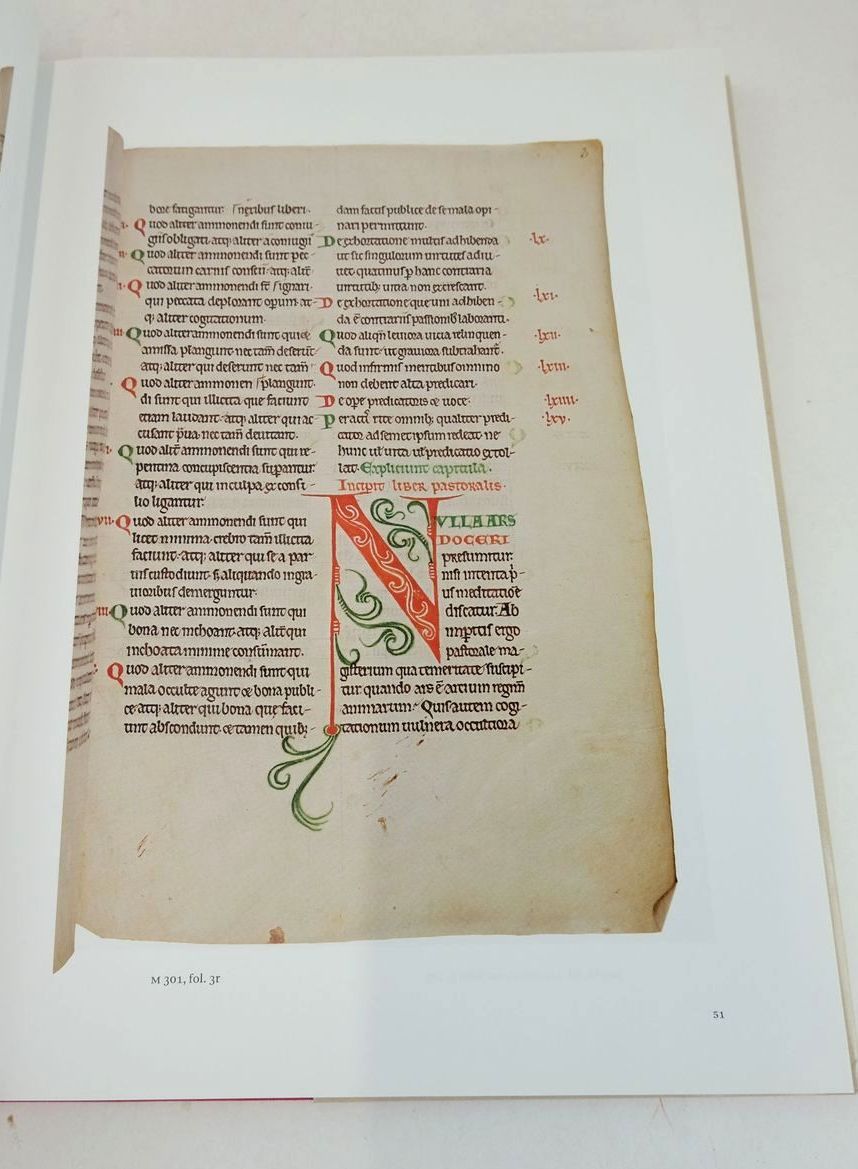 3
bore fatigantur. ſ neribus liberi.
Quod aliter ammonendi sunt coniu-
giis obligati. atq; aliter a coniugii
Quod aliter ammonendi sunt pec-
catorum carnis conscii. atq; alit̄
Quod aliter ammonendi st̄ ſ ignari.
qui peccata deplorant operum. at-
q; aliter cogitationum.
Quod aliter ammonendi sunt qui ea
amissa plangunt. nec tam̄ deserunt.
atq; aliter qui deserunt nec tam̄
Quod aliter ammonen ſ plangunt.
di sunt qui illicita que faciunt
etiam laudant. atq; aliter qui ac-
cusant prava. nec tam̄ devitant.
Quod alit̄ ammonendi sunt qui re-
pentina concupiscentia superantur
atq; aliter qui in culpa ex consi-
lio ligantur.
vii. Quod aliter ammonendi sunt qui
licet minima. crebro tam̄ illicita
faciunt. atq; aliter qui se a par-
vis custodiunt. s; aliquando in gra-
vioribus demerguntur.
Quod aliter ammonendi sunt qui
bona nec inchoant. atq; alit̄ qui
inchoata minime consūmant.
Quod aliter ammonendi sunt qui
mala occulte agunt et bona publi-
ce. atq; aliter qui bona que faci-
unt abscondunt. et tamen quib;-
dam factis publice de se mala opi-
nari permittunt.
De exhortatione multis adhibenda ·lx·
ut sic singulorum virtutes adiu-
vet. quatinus p hanc contraria
virtutib; vitia non excrescant.
De exhortatione que uni adhiben- ·lxi·
da ē contrariis passionib; laboranti.
Quod aliqn̄ leviora vicia relinquen- ·lxii·
da sunt. ut graviora subtrahant̄.
Quod infirmis mentibus omnino ·lxiii·
non debent alta predicari.
De ope predicatoris et voce. ·lxiiii·
Peractis rite omnib; qualiter predi- ·lxv·
cator ad semetipsum redeat. ne
hunc ul' vita ul' predicatio extol-
lat. Expliciunt capitula.
Incipit liber pastoralis.
NULLA ARS
DOCERI
presumitur.
nisi intenta p-
us meditatiōe
discatur. Ab
impitis ergo
pastorale ma-
gisterium qua temeritate suscipi-
tur. quando ars ē artium regim̄
animarum. Quis autem cogi-
tationum vulnera occultiora
M 301, fol. 3r
51